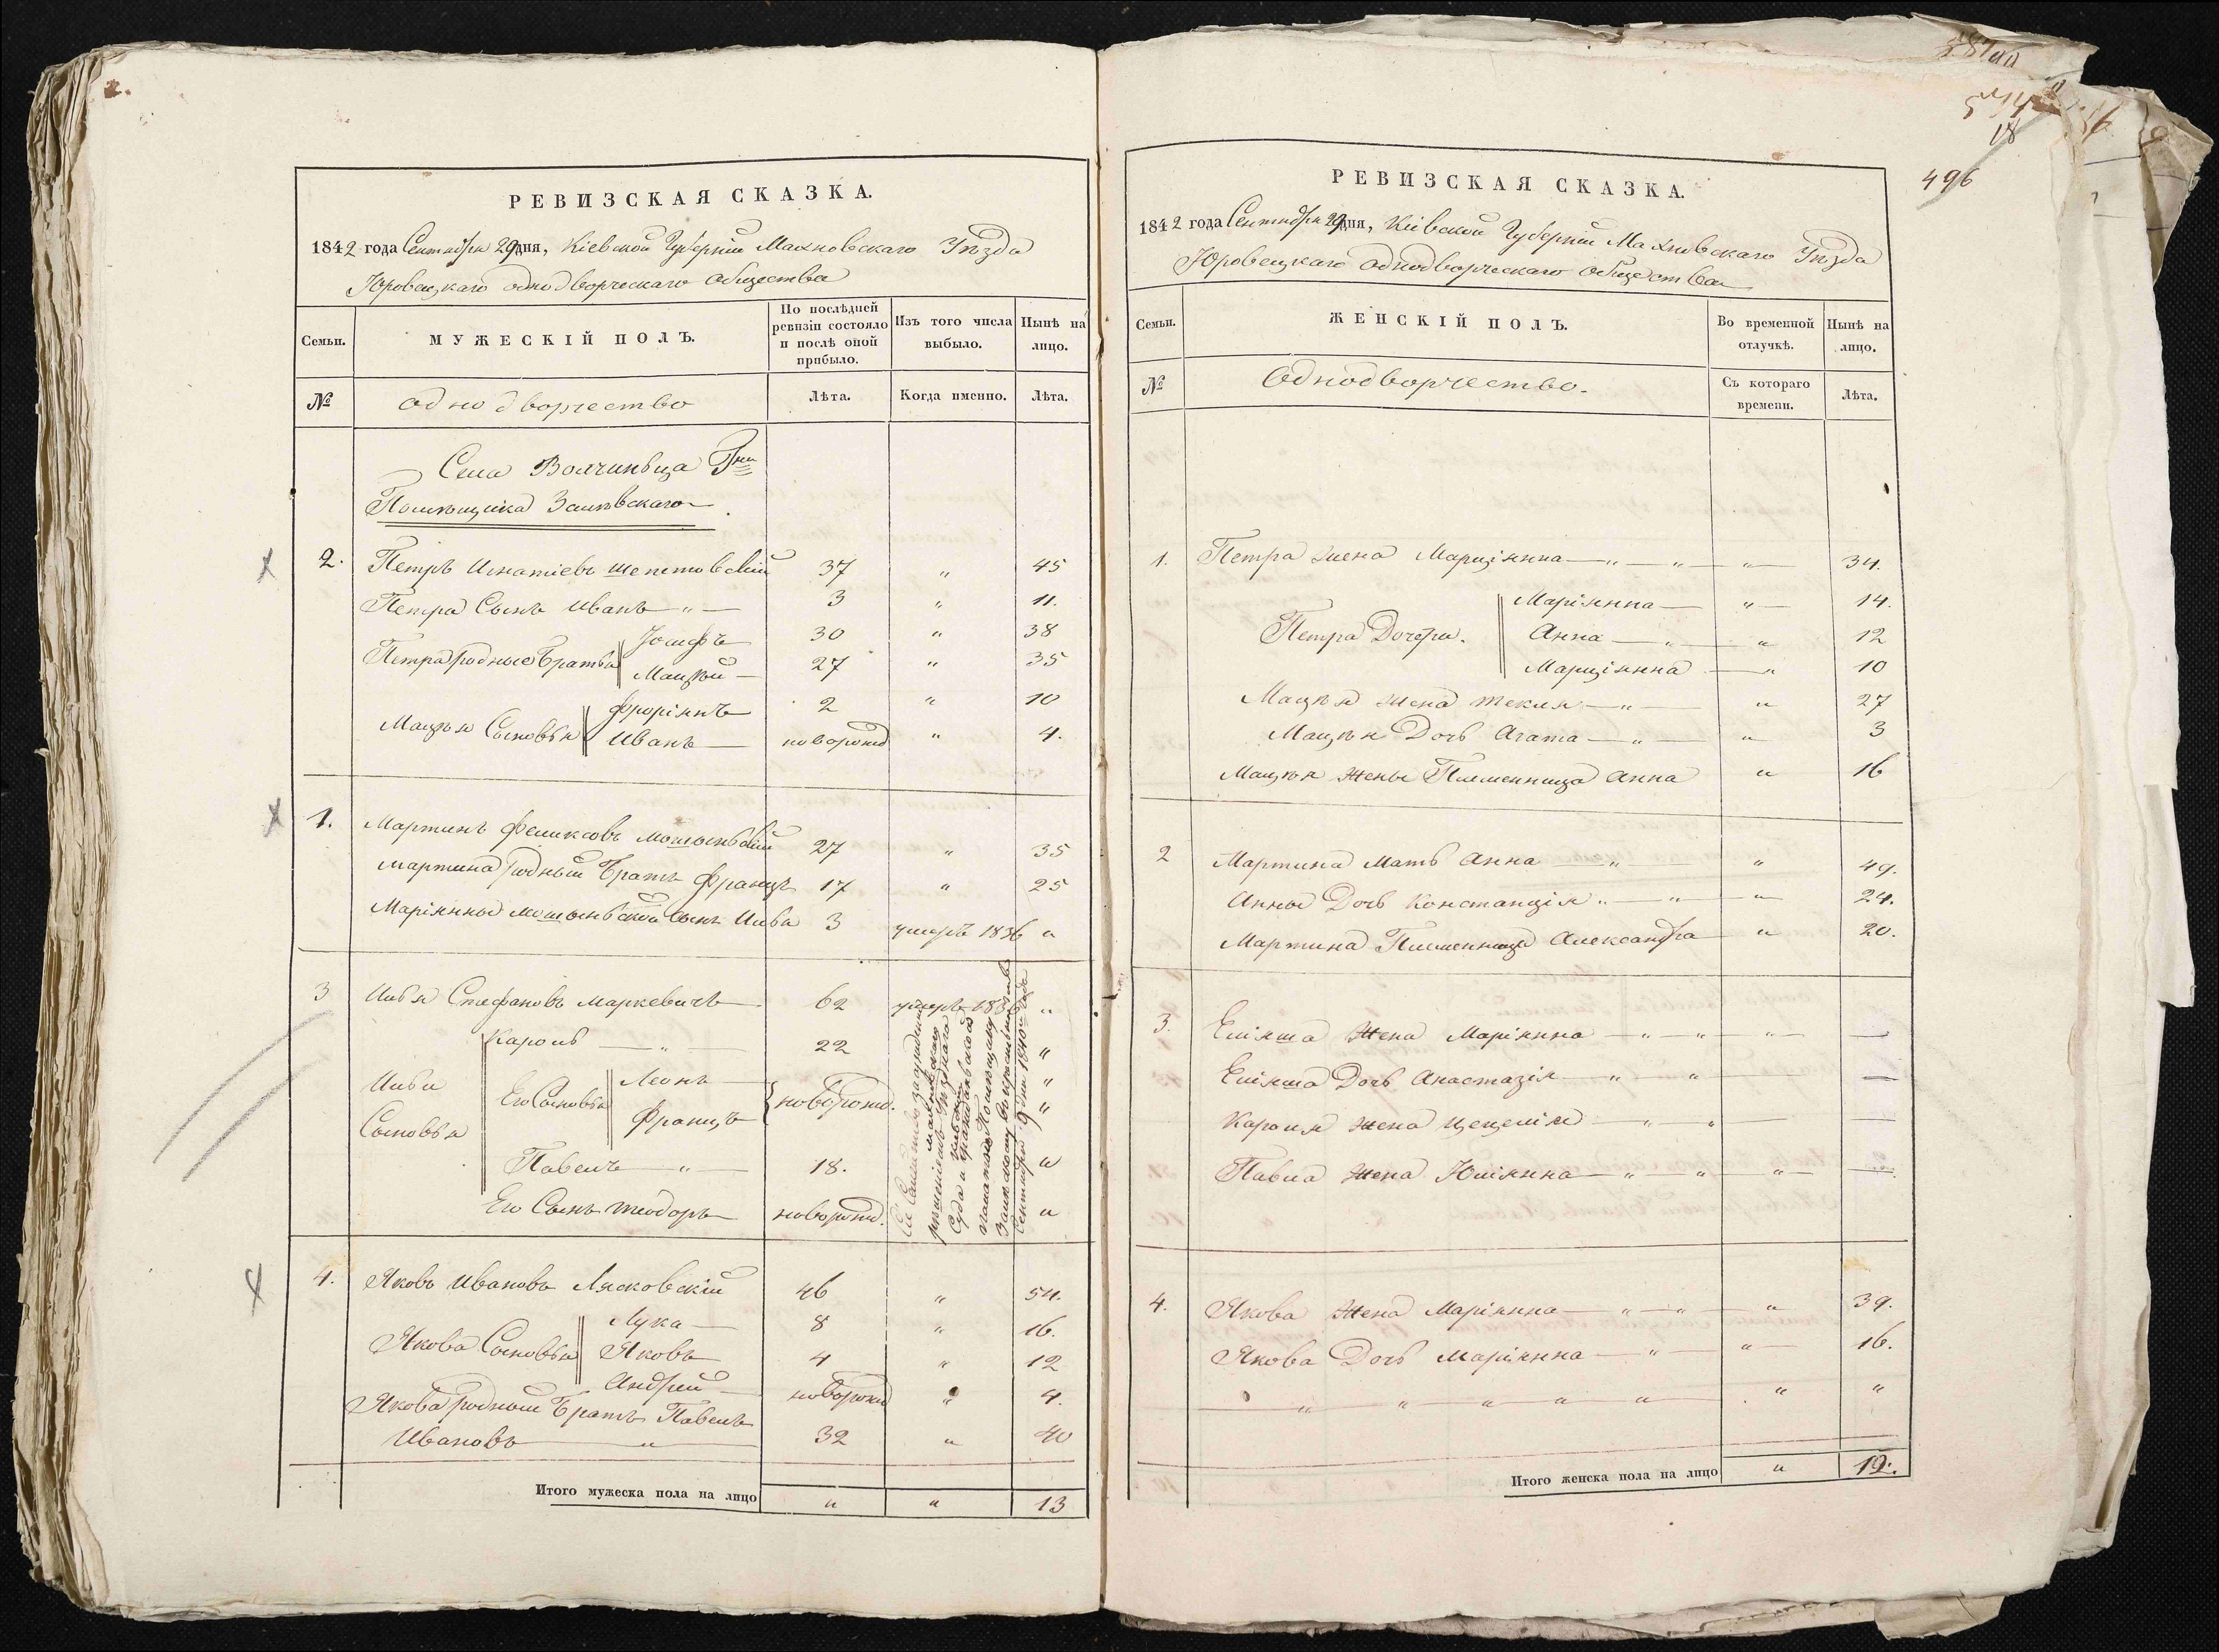 2.
РЕВИЗСКАЯ СКАЗКА.
1842 года Сентября 29 дня, Кіевской Губерніи Махновскаго Уѣзда
Юровецкаго однодворческаго общества
Семьи.
МУЖЕСКІЙ ПОЛЪ.
По послѣдней ревизіи состояло и послѣ оной прибыло.
Изъ того числа выбыло.
Нынѣ на лицо.
№
однодворчество
Лѣта.
Когда именно.
Лѣта.
Села Волчиньца
Помѣщика
2. Петръ Игнатіевъ Шепетовскій 37 " 45
Петра Сынъ Иванъ " 3 " 11.
Петра родные Братья
Іосифъ 30 " 38
Мацѣй 27 " 35
Мацѣя Сыновья
Флоріянъ 2 " 10
Иванъ новорожд " 4.
1. Мартинъ Феликсовъ 27 " 35
Мартина родный Братъ Францъ 17 " 25
Маріянны Сынъ Илья 3 умеръ 1836 "
3 Илья Стефановъ Маркевичъ 62 умеръ 1836 "
Ильи Сыновья
Кароль " 22 "
Его Сыновья
Леонъ "
Францъ новорожд. "
Павелъ " 18. "
Его Сынъ Теодоръ новорожд. "
Сентября 9 дня 1840 года
4. Яковъ Ивановъ Лясковскій 46 " 54.
Якова Сыновья
Лука 8 " 16.
Яковъ 4 " 12
Андрей новорожд " 4.
Якова родный Братъ Павелъ
Ивановъ " 32 " 40
Итого мужеска пола на лицо " " 13
18
496
РЕВИЗСКАЯ СКАЗКА.
1842 года Сентября 29 дня, Кіевской Губерніи Махновскаго Уѣзда
Юровецкаго однодворческаго общества
Семьи.
ЖЕНСКІЙ ПОЛЪ.
Во временной отлучкѣ.
Нынѣ на лицо.
№
Однодворчество.
Съ котораго времени.
Лѣта.
1. Петра жена Марціянна " " " 34.
Петра Дочери.
Маріянна " 14.
Анна " " 12
Марціянна " 10
Мацѣя жена Текля " " 27
Мацѣя Дочь Агата " " 3
Мацѣя жены Племенница Анна " 16
2 Мартина Мать Анна " " 49.
Анны Дочь Констанція " " " 24.
Мартина Племенница Александра " 20.
3. Еліяша Жена Маріянна " " " —
Еліяша Дочь Анастазія " " —
Кароля жена Цецелія " " —
Павла жена Юліянна " " " —
4. Якова Жена Маріянна " " " 39.
Якова Дочь Маріянна " " 16.
" " " " " " "
Итого женска пола на лицо " 12.